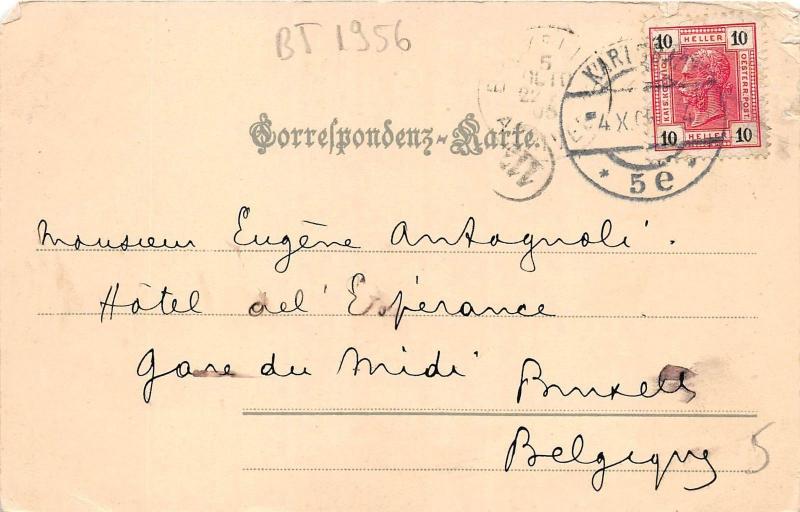 BT 1956
10 HELLER 10
KAIS. KÖ
OESTERR. POST.
10 HELLER 10
5
4 X
* 5 e *
Correspondenz-Karte.
Monsieur Eugène Antognoli.
Hôtel de l'Espérance
Gare du Midi Bruxell
Belgique
5